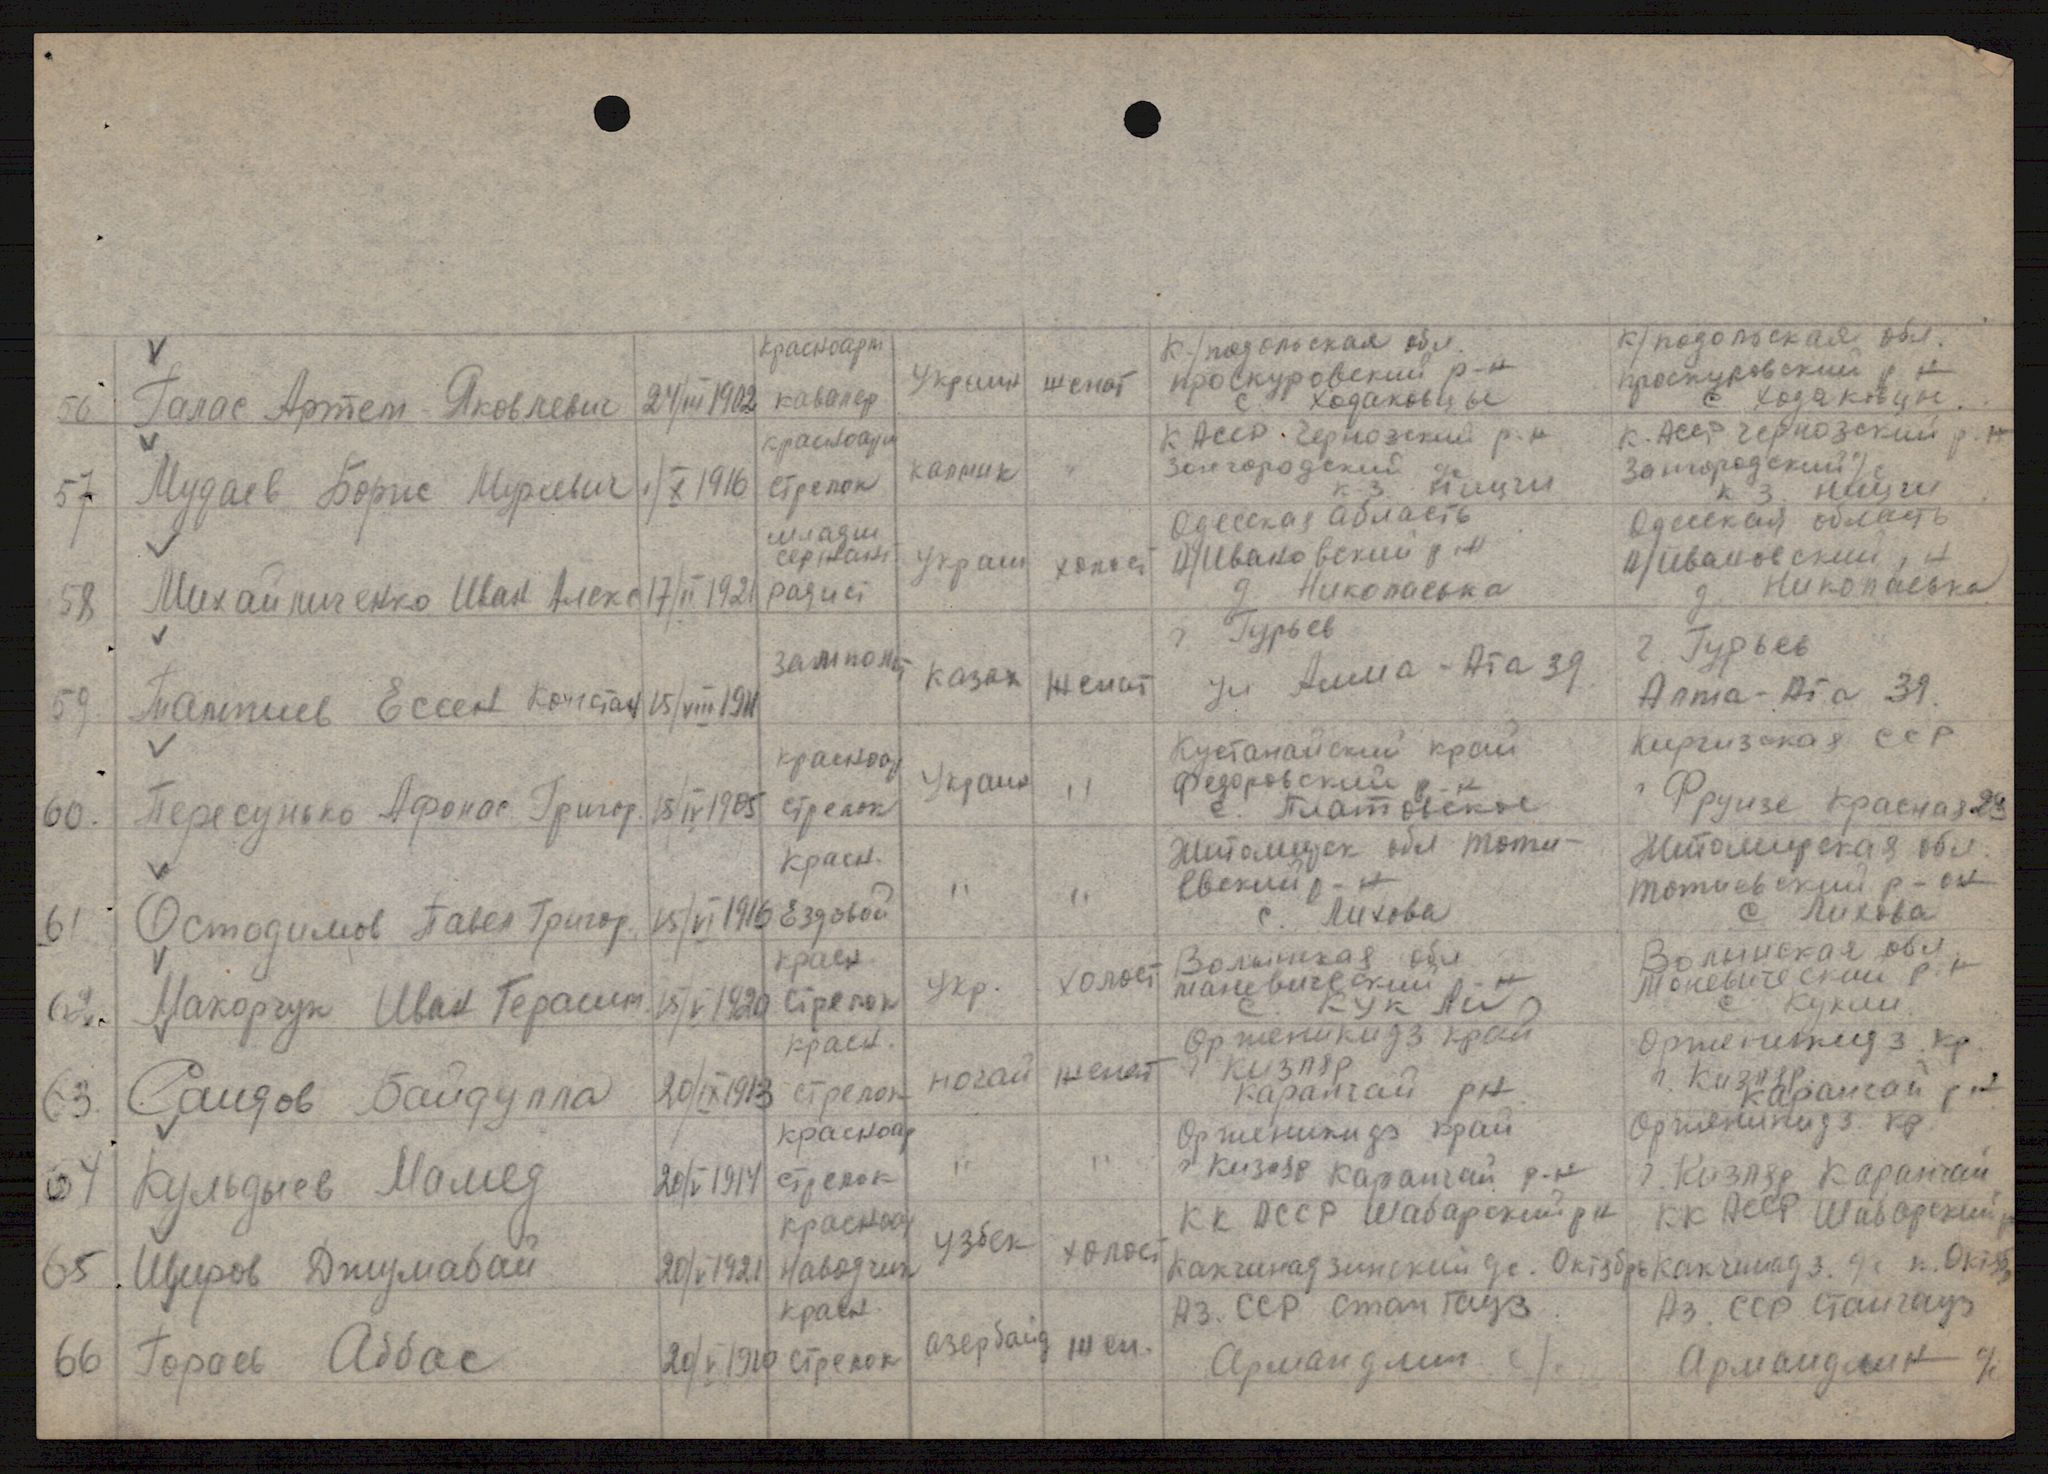 56 Галас Артем Яковлевич 24/III 1902 красноарм кавалер Украин женат К/подольская обл. проскуровский р-н с. Ходаковцы К/подольская обл. проскуровский р-н с. Ходаковцы
57 Мудаев Борис Муревич 1/X 1916 красноарм стрелок калмык " К АССР Чернозский р-н Зонгородский с/с к з. Ницги К. АССР Чернозский р-н Зонгородский с/с к з. Ницги
58 Михайличенко Иван Алекс 17/II 1921 младш сержант радист Украин холост Одесская область Д/Ивановский р-н д Николаевка Одесская область Д/Ивановский р-н д. Николаевка
59 Ессен Констан 15/VIII 1911 зам полит казах женат г Гурьев ул Алма-Ата 39 г Гурьев Алма-Ата 39.
60. Пересунько Афонас Григор. 15/IV 1905 красноар стрелок Украин " Кустанайский край Федоровский р-н с. Платовское Киргизская ССР г Фрунзе Красная 23
61 Остодимов Павел Григор. 15/VI 1916 красн. Ездовой " " Житомирск обл Тоти-евский р-н с. Лихова Житомирская обл. Тотиевский р-он с Лихова
62. Макорчук Иван Герасим. 15/V 1920 красн. стрелок Укр. холост Волынская обл маневический р-н с. Кукли Волынская обл Моневический р-н с Кукли
63. Саидов Байдулла 20/IX 1913 красн. стрелок ногай женат Орженикидз край г Кизляр Карангай рн Орженикидз. кр. г. Кизляр Карангай р-н
64 Кульдыев Мамед 20/V 1914 красноар стрелок " " Орженикидз край г Кизляр Карангай р-н Орженикидз. кр. г. Кизляр Карангай
65 Щиров Джумабай 20/V 1921 красноар наводчик узбек холост КК АССР Шабарский рн Какчинадзинский с/с. Октябрь КК АССР Шабарский р Какчинадз. с/с к. Октяб
66 Гораев Аббас 20/V 1920 красн стрелок азербайд жен. Аз. ССР Стан Гауз Армандлин с/с. Аз. ССР Стангауз Армандлин с/с